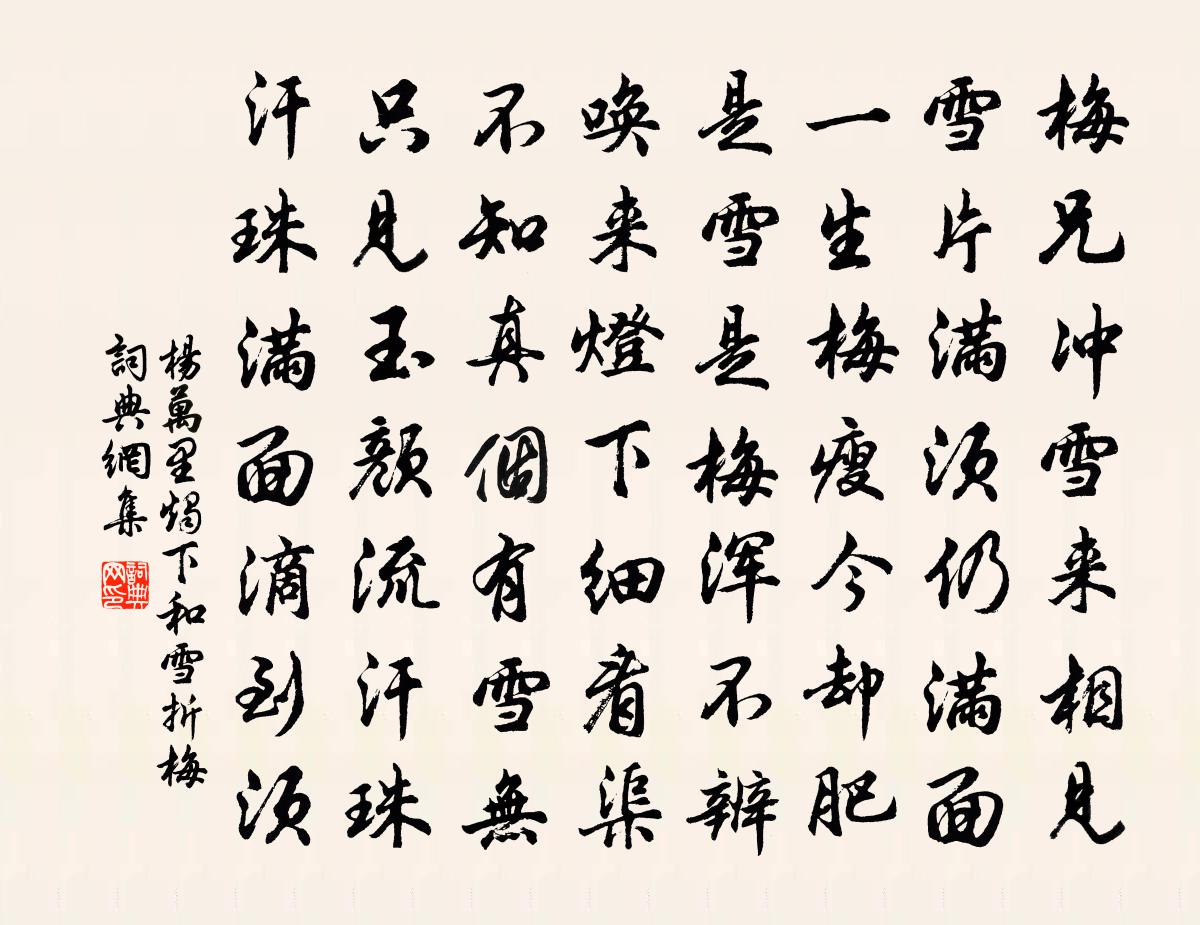 梅兄冲雪来相見
雪片満須仍満面
一生梅瘦今却肥
是雪是梅浑不辨
唤来燈下细看渠
不知真個有雪無
只見玉颜流汗珠
汗珠満面滴到須
楊萬里燭下和雪折梅
詞典網集
詞典网印